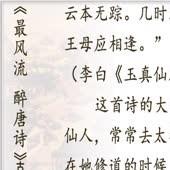 《最风流 醉唐诗》古
云本无踪。几时
王母应相逢。”
（李白《玉真仙
这首诗的大
仙人，常常去太
在她修道的时候